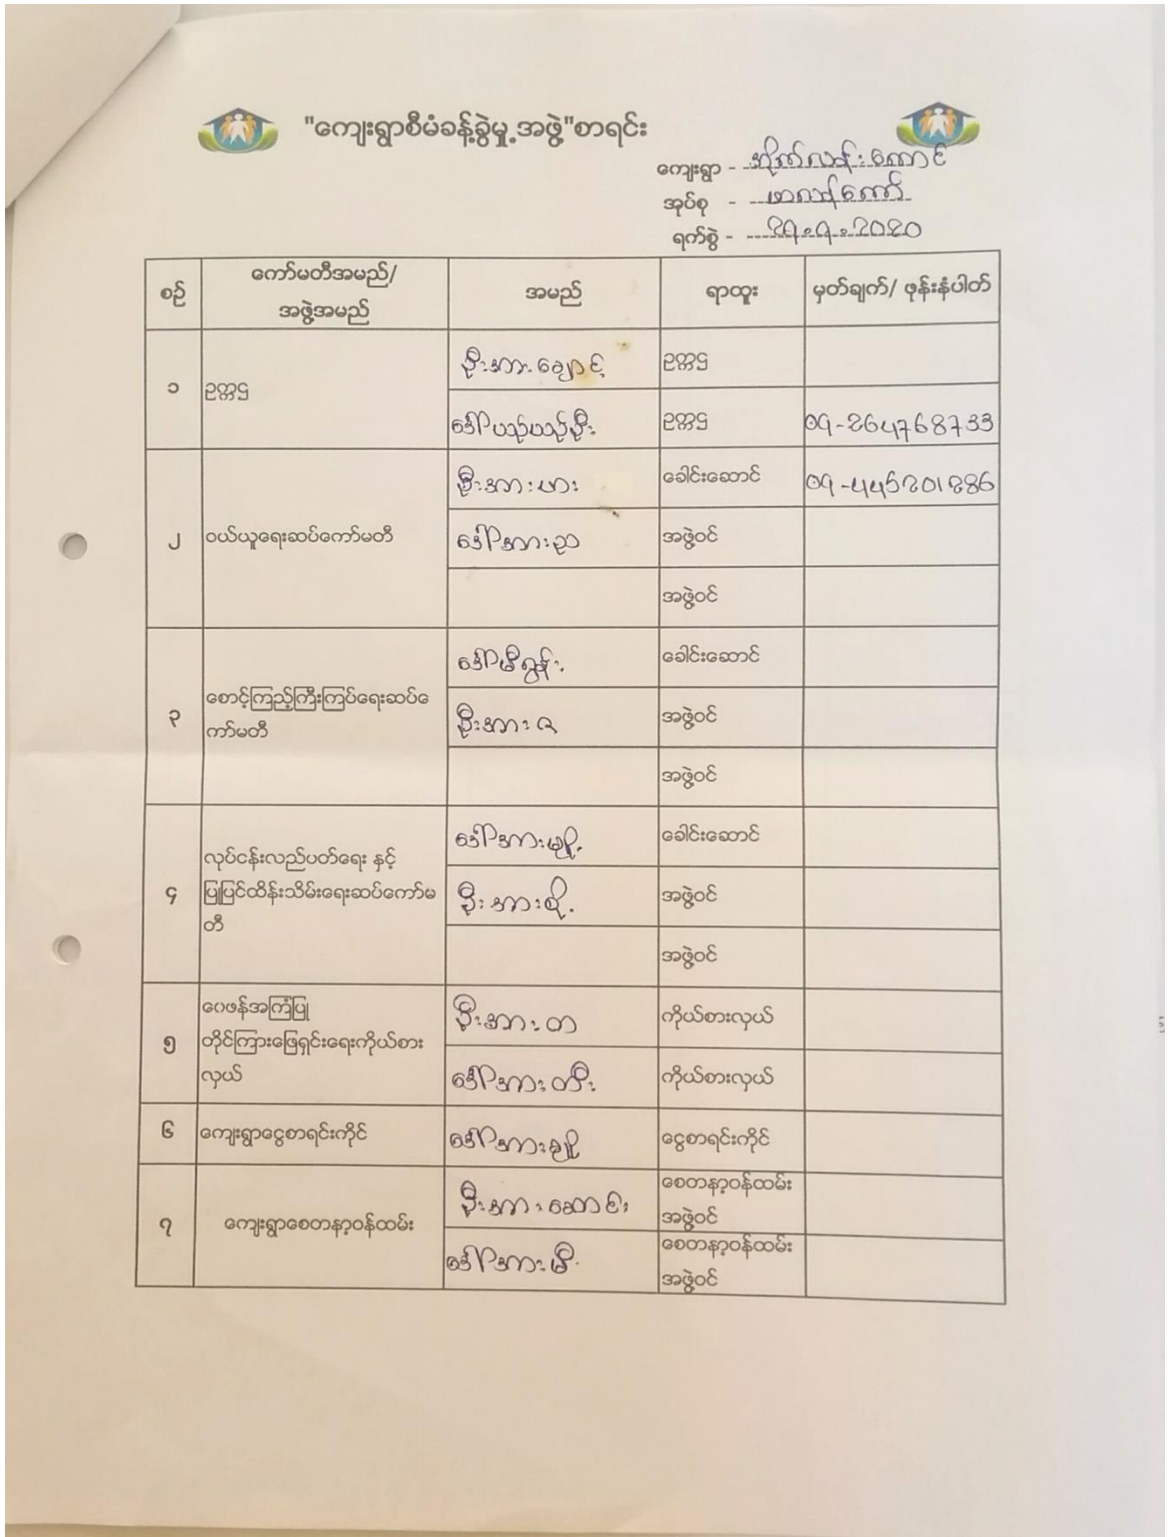 "ကျေးရွာစီမံခန့်ခွဲမှု့အဖွဲ့"စာရင်း
ကျေးရွာ -
အုပ်စု - ဟလန်ကော်
ရက်စွဲ - 29.9.2020
စဉ် ကော်မတီအမည်/ အဖွဲ့အမည် အမည် ရာထူး မှတ်ချက်/ ဖုန်းနံပါတ်
၁ ဥက္ကဌ ဦးအားချောင့် ဥက္ကဌ
ဒေါ်ယဉ်ယဉ်ဦး ဥက္ကဌ 09-264768733
၂ ဝယ်ယူရေးဆပ်ကော်မတီ ဦးအားဟား ခေါင်းဆောင် 09-445201286
ဒေါ်အားညာ အဖွဲ့ဝင်
အဖွဲ့ဝင်
၃ စောင့်ကြည့်ကြီးကြပ်ရေးဆပ်ကော်မတီ ဒေါ်မီရွှန်း ခေါင်းဆောင်
ဦးအားဇ အဖွဲ့ဝင်
အဖွဲ့ဝင်
၄ လုပ်ငန်းလည်ပတ်ရေး နှင့်
ပြုပြင်ထိန်းသိမ်းရေးဆပ်ကော်မတီ ဒေါ်အားမျို့ ခေါင်းဆောင်
ဦးအားစို့ အဖွဲ့ဝင်
အဖွဲ့ဝင်
၅ ဝေဖန်အကြံပြု
တိုင်ကြားဖြေရှင်းရေးကိုယ်စား
လှယ် ဦးအားတ ကိုယ်စားလှယ်
ဒေါ်အားတီး ကိုယ်စားလှယ်
၆ ကျေးရွာငွေစာရင်းကိုင် ဒေါ်အားချို ငွေစာရင်းကိုင်
၇ ကျေးရွာစေတနာ့ဝန်ထမ်း ဦးအားဆောင်း စေတနာ့ဝန်ထမ်း
အဖွဲ့ဝင်
ဒေါ်အားမီ စေတနာ့ဝန်ထမ်း
အဖွဲ့ဝင်